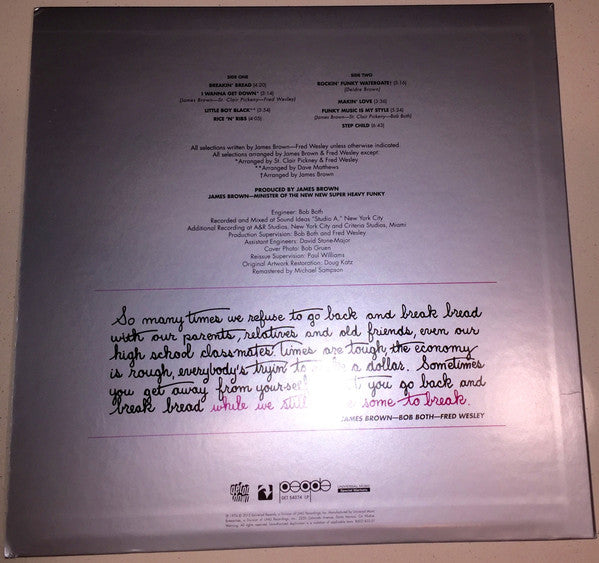 SIDE ONE
BREAKIN' BREAD (4:20)
I WANNA GET DOWN* (3:14)
(James Brown—St. Clair Pickney—Fred Wesley)
LITTLE BOY BLACK** (3:54)
RICE 'N' RIBS (4:05)
SIDE TWO
ROCKIN' FUNKY WATERGATE† (3:16)
(Deidre Brown)
MAKIN' LOVE (3:36)
FUNKY MUSIC IS MY STYLE (5:34)
(James Brown—St. Clair Pickney—Bob Both)
STEP CHILD (6:45)
All selections written by James Brown—Fred Wesley unless otherwise indicated.
All selections arranged by James Brown & Fred Wesley except:
*Arranged by St. Clair Pickney & Fred Wesley
**Arranged by Dave Matthews
†Arranged by James Brown
PRODUCED BY JAMES BROWN
JAMES BROWN—MINISTER OF THE NEW NEW SUPER HEAVY FUNKY
Engineer: Bob Both
Recorded and Mixed at Sound Ideas "Studio A," New York City
Additional Recording at A&R Studios, New York City and Criteria Studios, Miami
Production Supervision: Bob Both and Fred Wesley
Assistant Engineers: David Stone-Major
Cover Photo: Bob Gruen
Reissue Supervision: Paul Williams
Original Artwork Restoration: Doug Katz
Remastered by Michael Sampson
So many times we refuse to go back and break bread
with our parents, relatives and old friends, even our
high school classmates. Times are tough, the economy
is rough, everybody's tryin' to a dollar. Sometimes
you get away from your-self you go back and
break bread while we still some to break.
JAMES BROWN—BOB BOTH—FRED WESLEY
get on down
people
GET 54074 LP
UNIVERSAL MUSIC
Special Markets